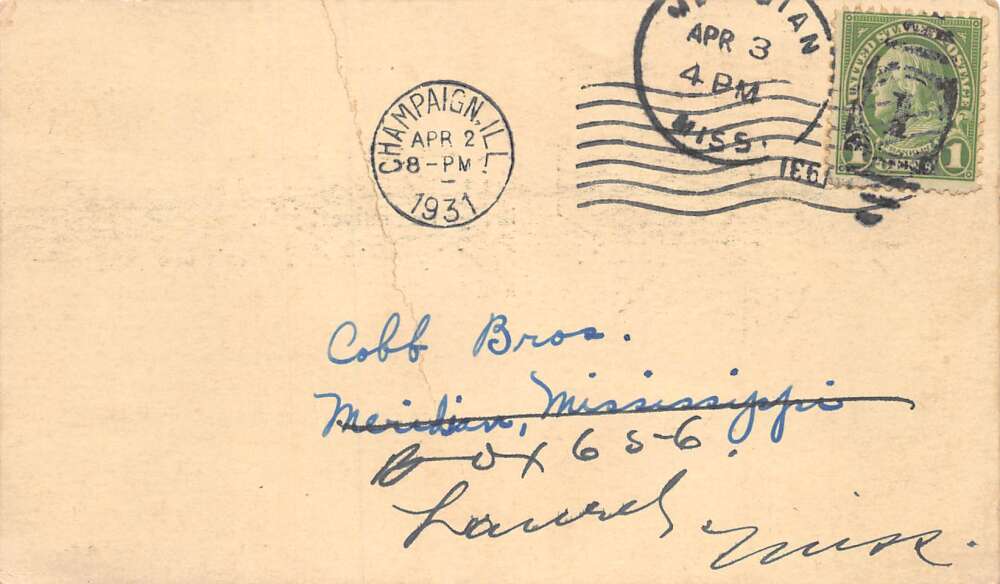 CHAMPAIGN, ILL.
APR 2
8-PM
1931
APR 3
4 PM
MISS.
UNITED STATES POSTAGE
1 1
Cobb Bros.
Meridian, Mississippi
Box 656
Laurel, Miss.